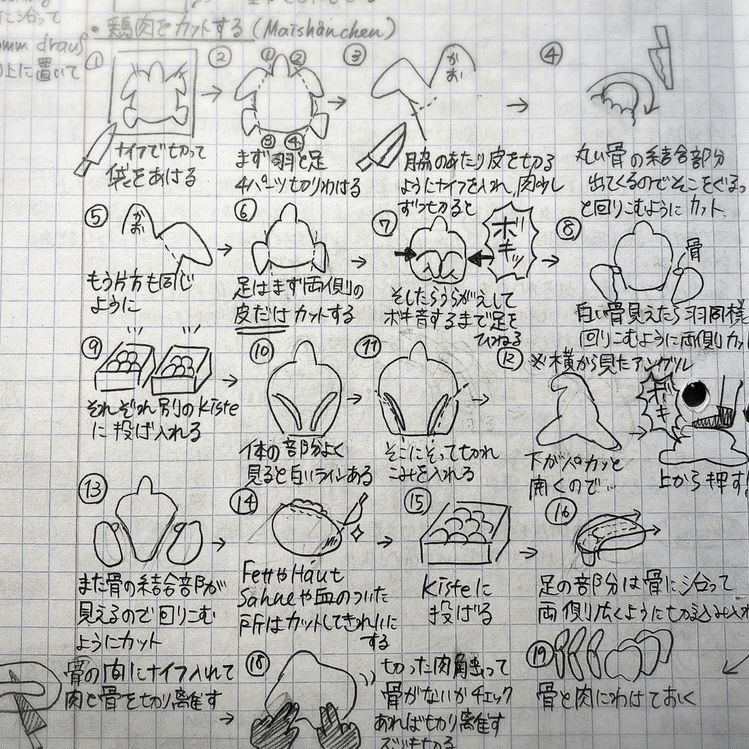 に沿って
mm drauf
上に置いて
・鶏肉をカットする (Maishänchen)
①
ナイフで切って
袋をあける
②
① ②
③ ④
まず羽と足
4パーツ切りわける
③
かお
脇のあたり皮を切る
ようにナイフを入れ、肉少し
ずつ切ると
④
丸い骨の結合部分
出てくるのでそこをぐるっ
と回りこむようにカット
⑤
かお
もう片方も同じ
ように
⑥
足はまず両側の
皮だけカットする
⑦
ボキッ
そしたらうらがえして
ボキ音するまで足を
ひねる
⑧
骨
白い骨見えたら羽同様
回りこむように両側カッ
⑨
それぞれ別のKiste
に投げ入れる
⑩
体の部分よく
見ると白いラインある
⑪
そこにそって切れ
こみを入れる
⑫
※横から見たアングル
下がパカッと
開くので…
ボキ
上から押す!
⑬
また骨の結合部が
見えるので回りこむ
ようにカット
⑭
FettやHaut
Sahneや血のついた
所はカットしてきれいに
する
⑮
Kisteに
投げる
⑯
足の部分は骨に沿って
両側広くように切込み入れ
骨の間にナイフ入れて
肉と骨を切り離す
⑱
切った肉触って
骨がないかチェック
あれば切り離す
⑲
骨と肉にわけておく